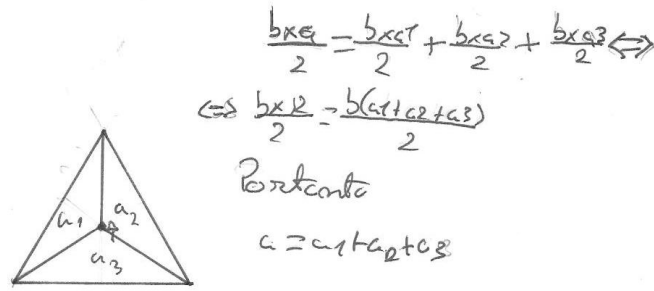 b×a/2 = b×a1/2 + b×a2/2 + b×a3/2 ⇔
⇔ b×a/2 = b(a1+a2+a3)/2
Portanto
a = a1+a2+a3
a1
a2
a3